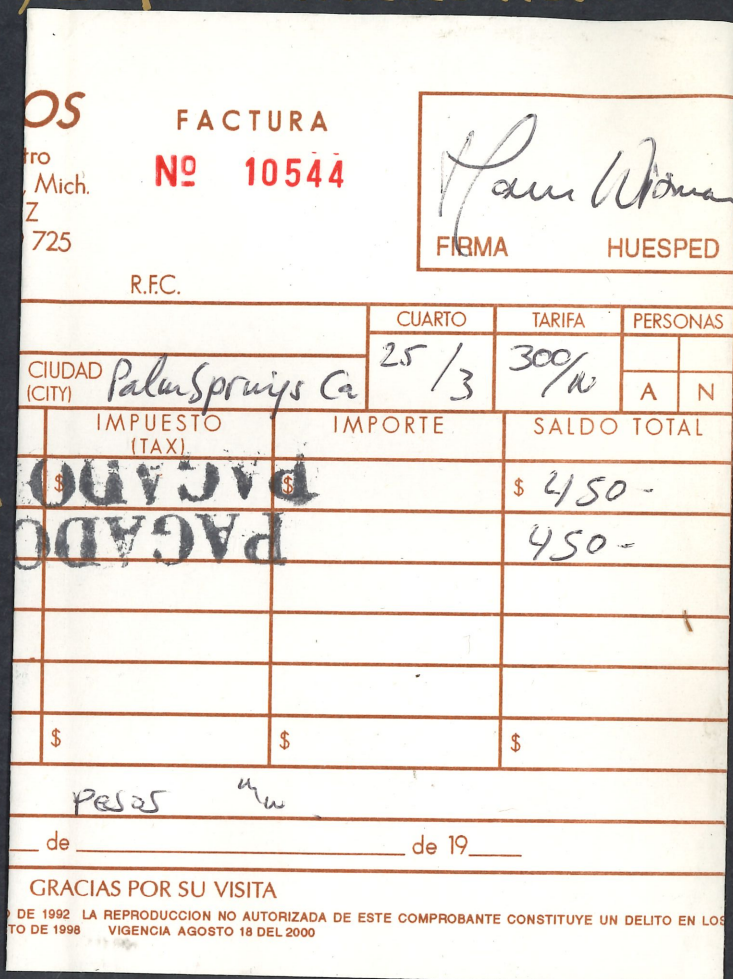 OS
FACTURA
tro
Nº 10544
, Mich.
Z
725
FIRMA HUESPED
R.F.C.
CUARTO TARIFA PERSONAS
CIUDAD (CITY) Palm Springs Ca
25/3
300/
A N
IMPUESTO (TAX) IMPORTE SALDO TOTAL
PAGADO
$ $ $ 450-
PAGADO
450-
$ $ $
pesos
de de 19
GRACIAS POR SU VISITA
DE 1992 LA REPRODUCCION NO AUTORIZADA DE ESTE COMPROBANTE CONSTITUYE UN DELITO EN LOS
TO DE 1998 VIGENCIA AGOSTO 18 DEL 2000